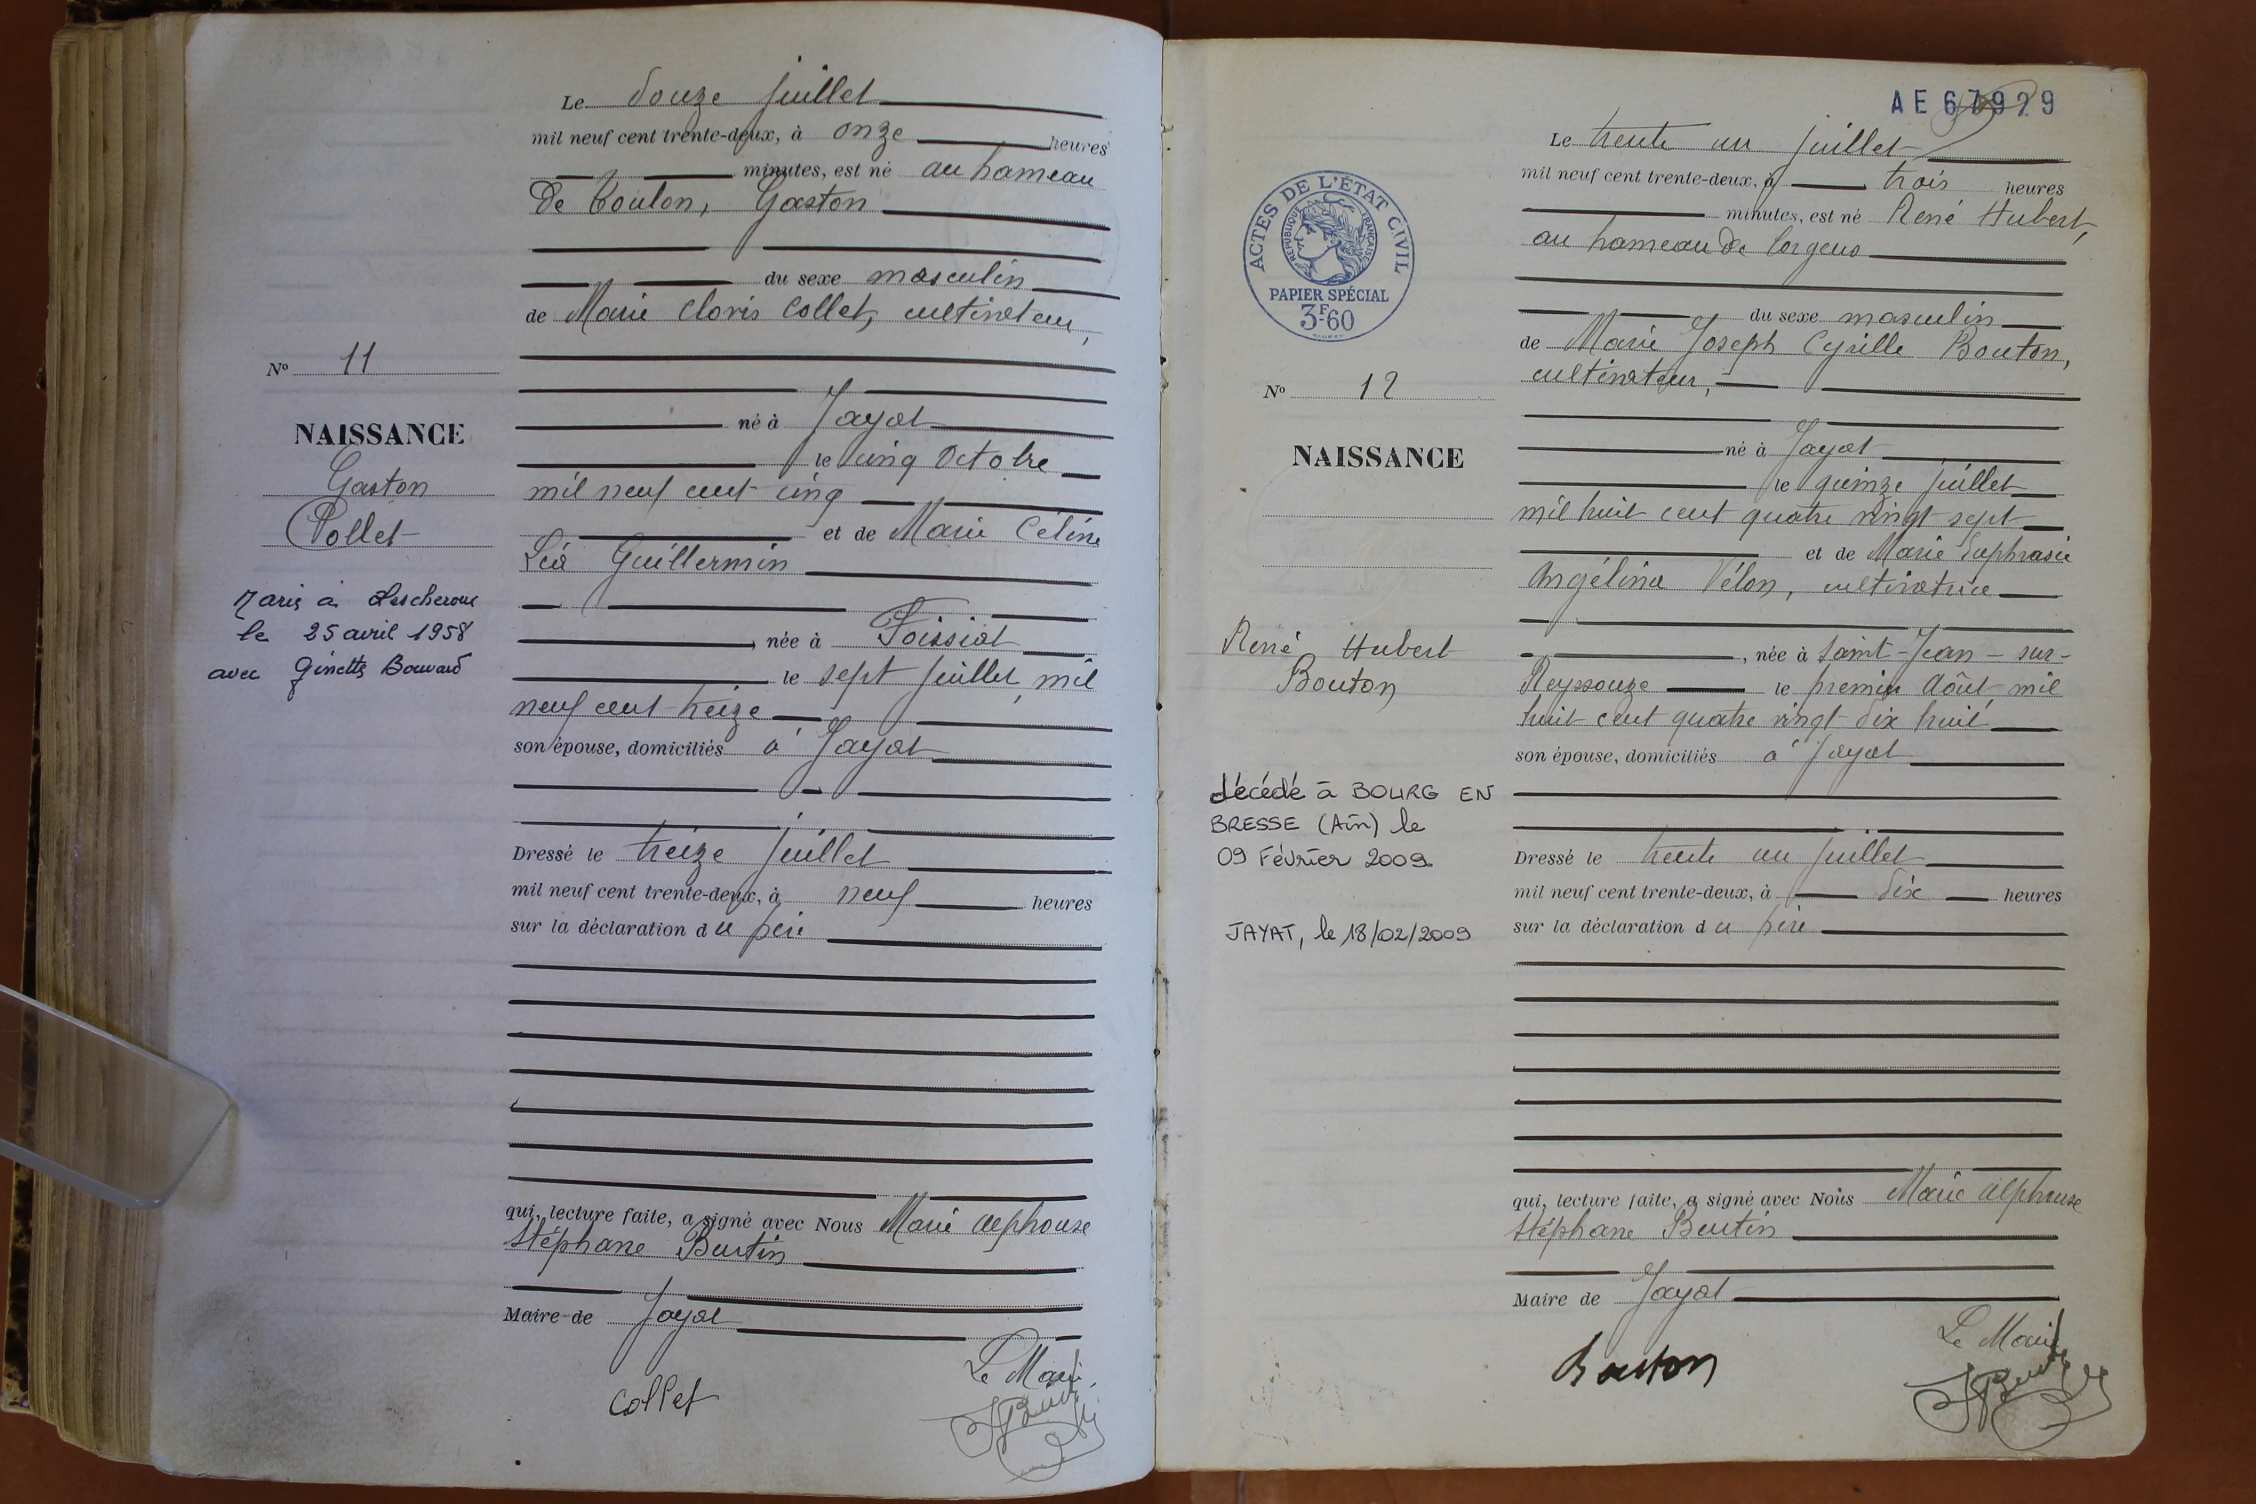 Le douze juillet
mil neuf cent trente-deux, à onze heures
minutes, est né au hameau
de Coulon, Gaston
du sexe masculin
de Marie Clovis Collet, cultivateur,
né à Jayat
le cinq Octobre
mil neuf cent cinq
et de Marie Céline
Léa Guillermin
née à Foissiat
le sept juillet mil
neuf cent treize
son épouse, domiciliés à Jayat
Dressé le treize juillet
mil neuf cent trente-deux, à neuf heures
sur la déclaration du père
qui, lecture faite, a signé avec Nous Marie Alphonse
Stéphane Burtin
Maire de Jayat
Le Maire
Collet
No 11
NAISSANCE
Gaston
Collet
Marié à Lescheroux
le 25 avril 1958
avec Ginette Bouvard
AE 67929
Le trente un juillet
mil neuf cent trente-deux, à trois heures
minutes, est né René Hubert,
au hameau de
du sexe masculin
de Marie Joseph Cyrille Bouton,
cultivateur,
né à Jayat
le quinze juillet
mil huit cent quatre vingt sept
et de Marie Euphrasie
Angélina Vélon, cultivatrice
, née à Saint-Jean-sur-
Reyssouze le premier Août mil
huit cent quatre vingt dix huit
son épouse, domiciliés à Jayat
Dressé le trente un juillet
mil neuf cent trente-deux, à dix heures
sur la déclaration du père
qui, lecture faite, a signé avec Nous Marie Alphonse
Stéphane Burtin
Maire de Jayat
Le Maire
Bouton
ACTES DE L'ÉTAT CIVIL
RÉPUBLIQUE FRANÇAISE
PAPIER SPÉCIAL
3F60
No 12
NAISSANCE
René Hubert
Bouton
décédé à BOURG EN
BRESSE (Ain) le
09 Février 2009
JAYAT, le 18/02/2009